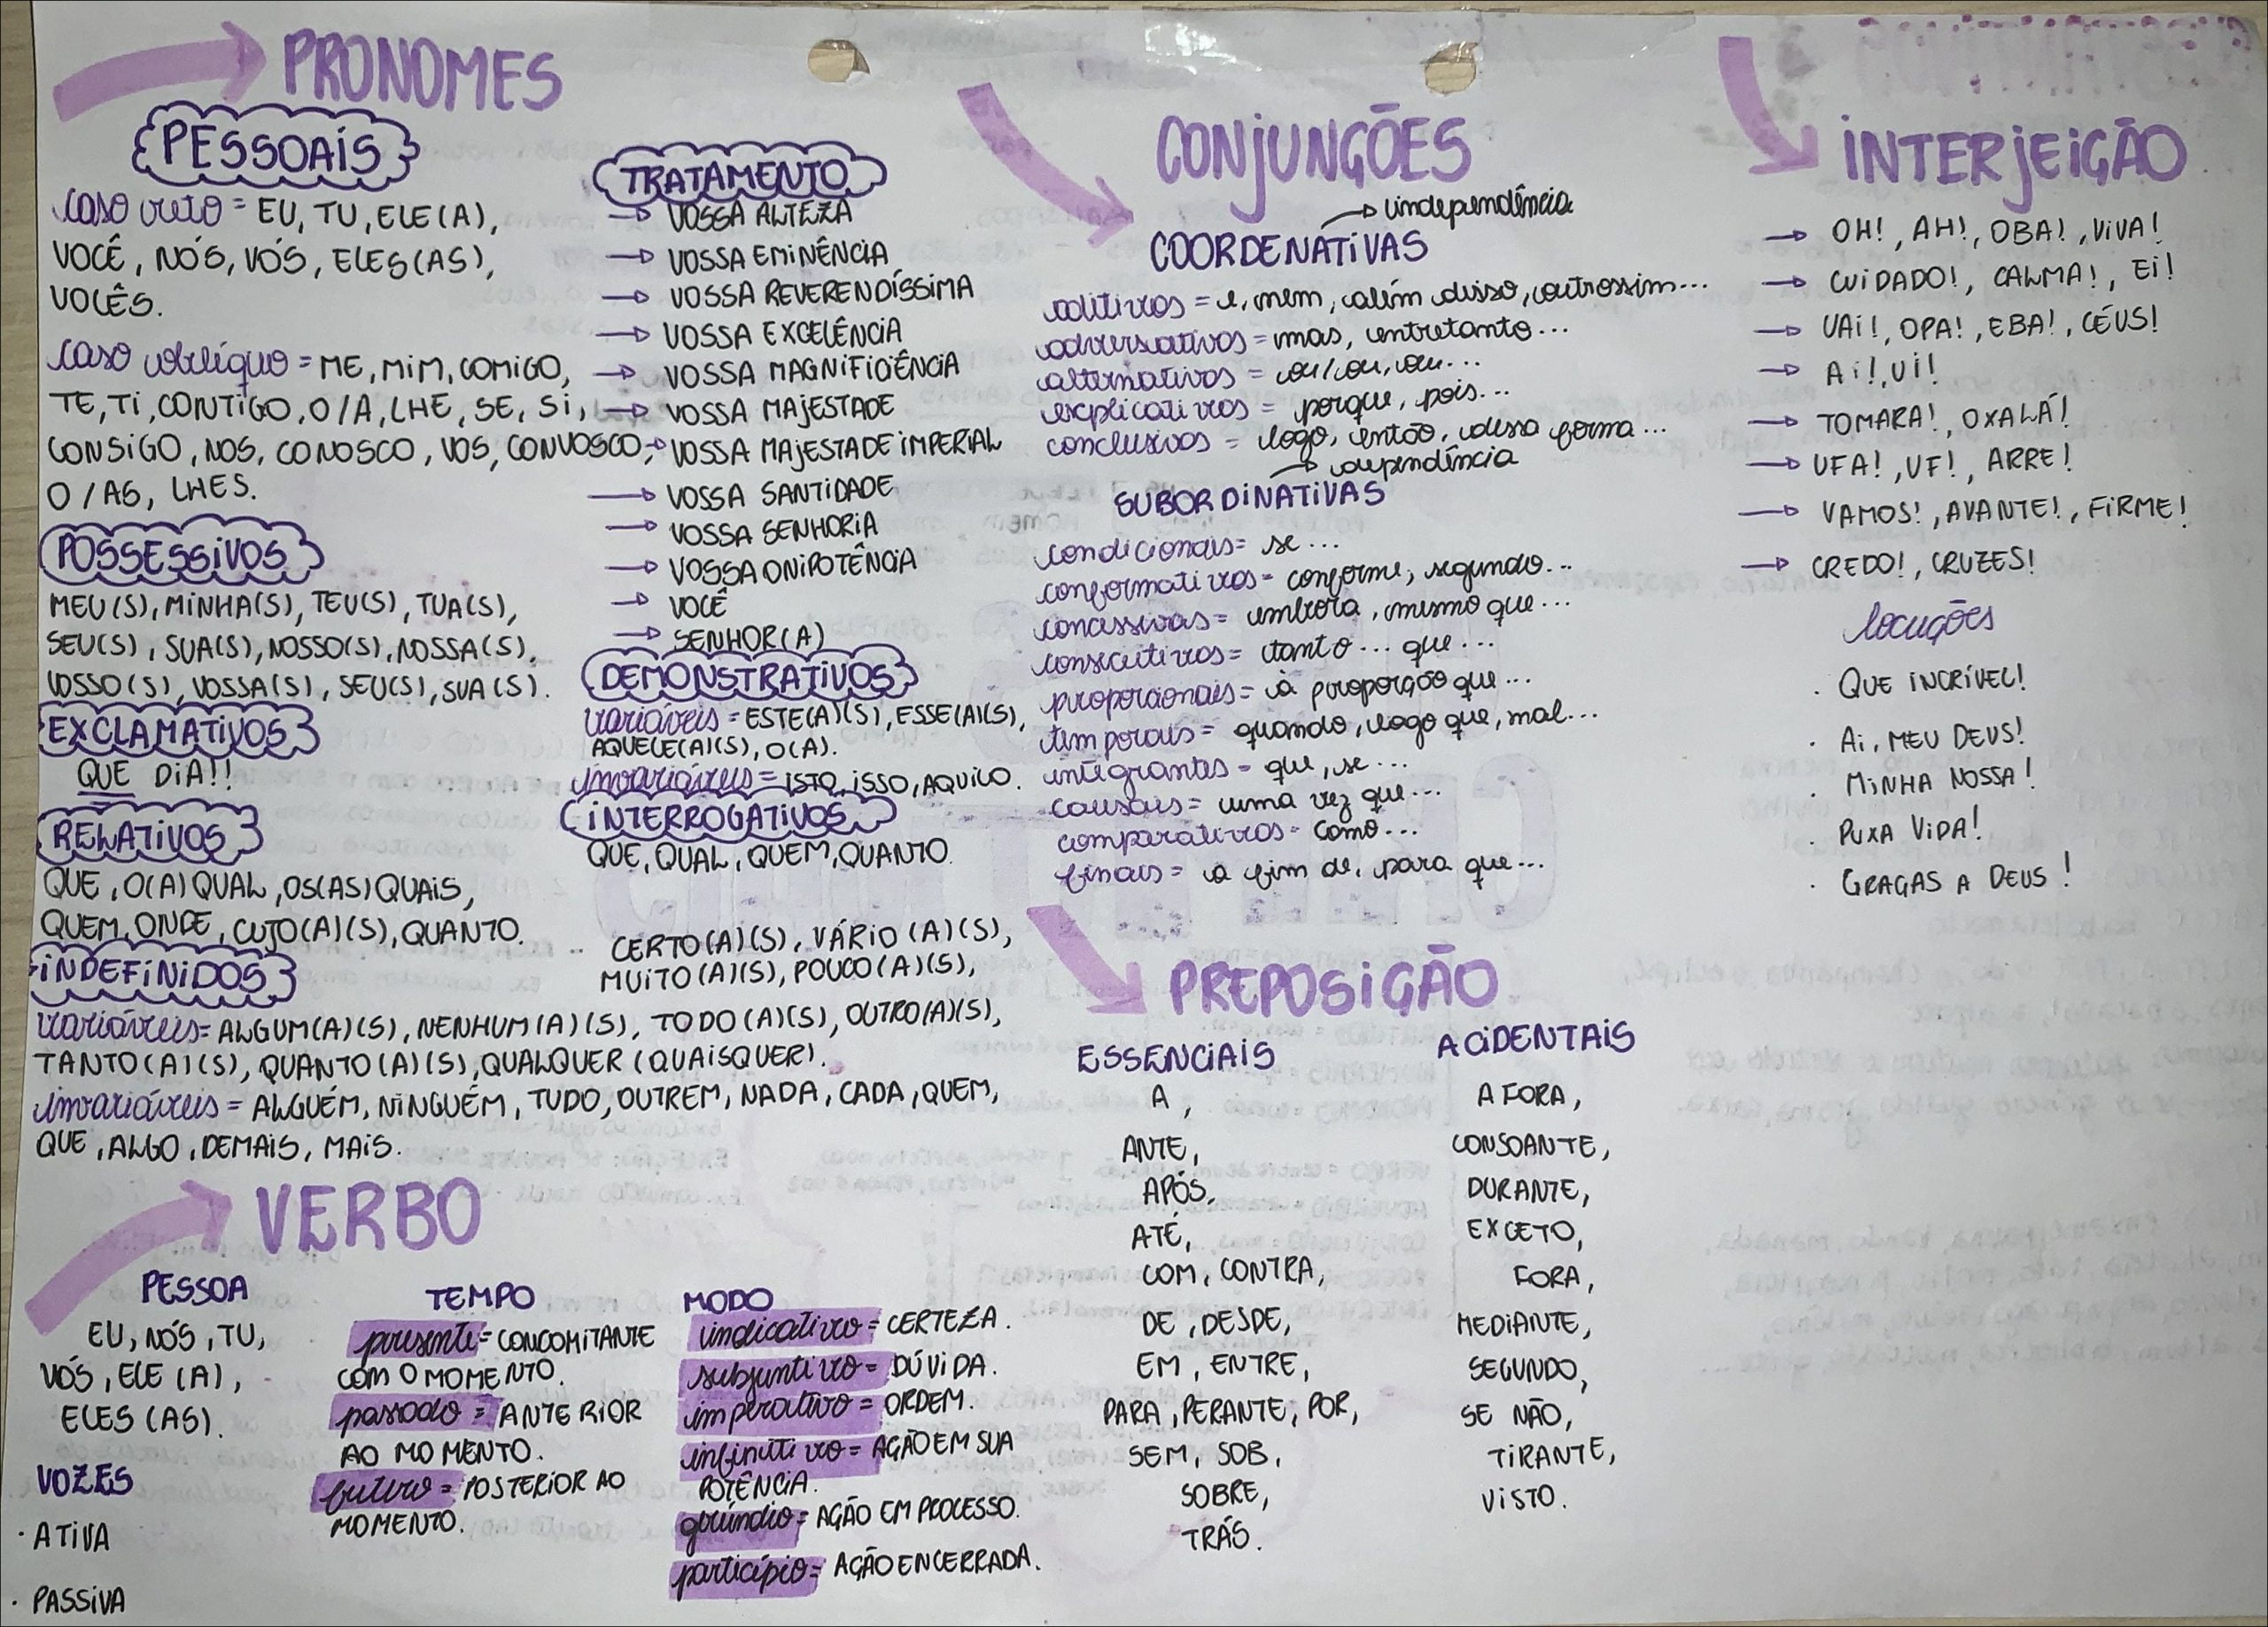 PRONOMES
PESSOAIS
caso reto = EU, TU, ELE(A),
VOCÊ, NÓS, VÓS, ELES(AS),
VOCÊS.
caso oblíquo = ME, MIM, COMIGO,
TE, TI, CONTIGO, O/A, LHE, SE, SI,
CONSIGO, NOS, CONOSCO, VOS, CONVOSCO,
O/AS, LHES.
POSSESSIVOS
MEU(S), MINHA(S), TEU(S), TUA(S),
SEU(S), SUA(S), NOSSO(S), NOSSA(S),
VOSSO(S), VOSSA(S), SEU(S), SUA(S).
EXCLAMATIVOS
QUE DIA!!
RELATIVOS
QUE, O(A) QUAL, OS(AS) QUAIS,
QUEM, ONDE, CUJO(A)(S), QUANTO.
TRATAMENTO
→ VOSSA ALTEZA
→ VOSSA EMINÊNCIA
→ VOSSA REVERENDÍSSIMA
→ VOSSA EXCELÊNCIA
→ VOSSA MAGNIFICÊNCIA
→ VOSSA MAJESTADE
→ VOSSA MAJESTADE IMPERIAL
→ VOSSA SANTIDADE
→ VOSSA SENHORIA
→ VOSSA ONIPOTÊNCIA
→ VOCÊ
→ SENHOR(A)
DEMONSTRATIVOS
variáveis = ESTE(A)(S), ESSE(A)(S),
AQUELE(A)(S), O(A).
invariáveis = ISTO, ISSO, AQUILO.
INTERROGATIVOS
QUE, QUAL, QUEM, QUANTO.
INDEFINIDOS
CERTO(A)(S), VÁRIO(A)(S),
MUITO(A)(S), POUCO(A)(S),
variáveis = ALGUM(A)(S), NENHUM(A)(S), TODO(A)(S), OUTRO(A)(S),
TANTO(A)(S), QUANTO(A)(S), QUALQUER (QUAISQUER).
invariáveis = ALGUÉM, NINGUÉM, TUDO, OUTREM, NADA, CADA, QUEM,
QUE, ALGO, DEMAIS, MAIS.
VERBO
PESSOA
EU, NÓS, TU,
VÓS, ELE(A),
ELES(AS).
VOZES
· ATIVA
· PASSIVA
TEMPO
presente = CONCOMITANTE
COM O MOMENTO.
passado = ANTERIOR
AO MOMENTO.
futuro = POSTERIOR AO
MOMENTO.
MODO
indicativo = CERTEZA.
subjuntivo = DÚVIDA.
imperativo = ORDEM.
infinitivo = AÇÃO EM SUA
POTÊNCIA.
gerúndio = AÇÃO EM PROCESSO.
particípio = AÇÃO ENCERRADA.
CONJUNÇÕES
→ independência
COORDENATIVAS
aditivos = e, nem, além disso, outrossim...
adversativos = mas, entretanto...
alternativos = ou/ou, ou...
explicativos = porque, pois...
conclusivos = logo, então, dessa forma...
→ dependência
SUBORDINATIVAS
condicionais = se...
conformativos = conforme, segundo...
concessivas = embora, mesmo que...
consecutivos = tanto... que...
proporcionais = à proporção que...
temporais = quando, logo que, mal...
integrantes = que, se...
causais = uma vez que...
comparativos = como...
finais = a fim de, para que...
PREPOSIÇÃO
ESSENCIAIS
A,
ANTE,
APÓS,
ATÉ,
COM, CONTRA,
DE, DESDE,
EM, ENTRE,
PARA, PERANTE, POR,
SEM, SOB,
SOBRE,
TRÁS.
ACIDENTAIS
AFORA,
CONSOANTE,
DURANTE,
EXCETO,
FORA,
MEDIANTE,
SEGUNDO,
SE NÃO,
TIRANTE,
VISTO.
INTERJEIÇÃO
→ OH!, AH!, OBA!, VIVA!
→ CUIDADO!, CALMA!, EI!
→ UAI!, OPA!, EBA!, CÉUS!
→ AI!, UI!
→ TOMARA!, OXALÁ!
→ UFA!, UF!, ARRE!
→ VAMOS!, AVANTE!, FIRME!
→ CREDO!, CRUZES!
locuções
· QUE INCRÍVEL!
· AI, MEU DEUS!
· MINHA NOSSA!
· PUXA VIDA!
· GRAÇAS A DEUS!